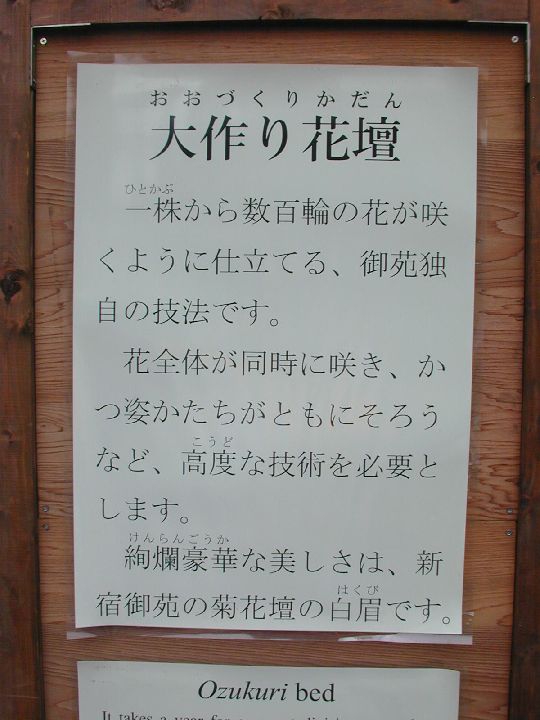 おおづくりかだん
大作り花壇
ひとかぶ
一株から数百輪の花が咲
くように仕立てる、御苑独
自の技法です。
花全体が同時に咲き、か
つ姿かたちがともにそろう
こうど
など、高度な技術を必要と
します。
けんらんごうか
絢爛豪華な美しさは、新
はくび
宿御苑の菊花壇の白眉です。
Ozukuri bed
It takes a year for